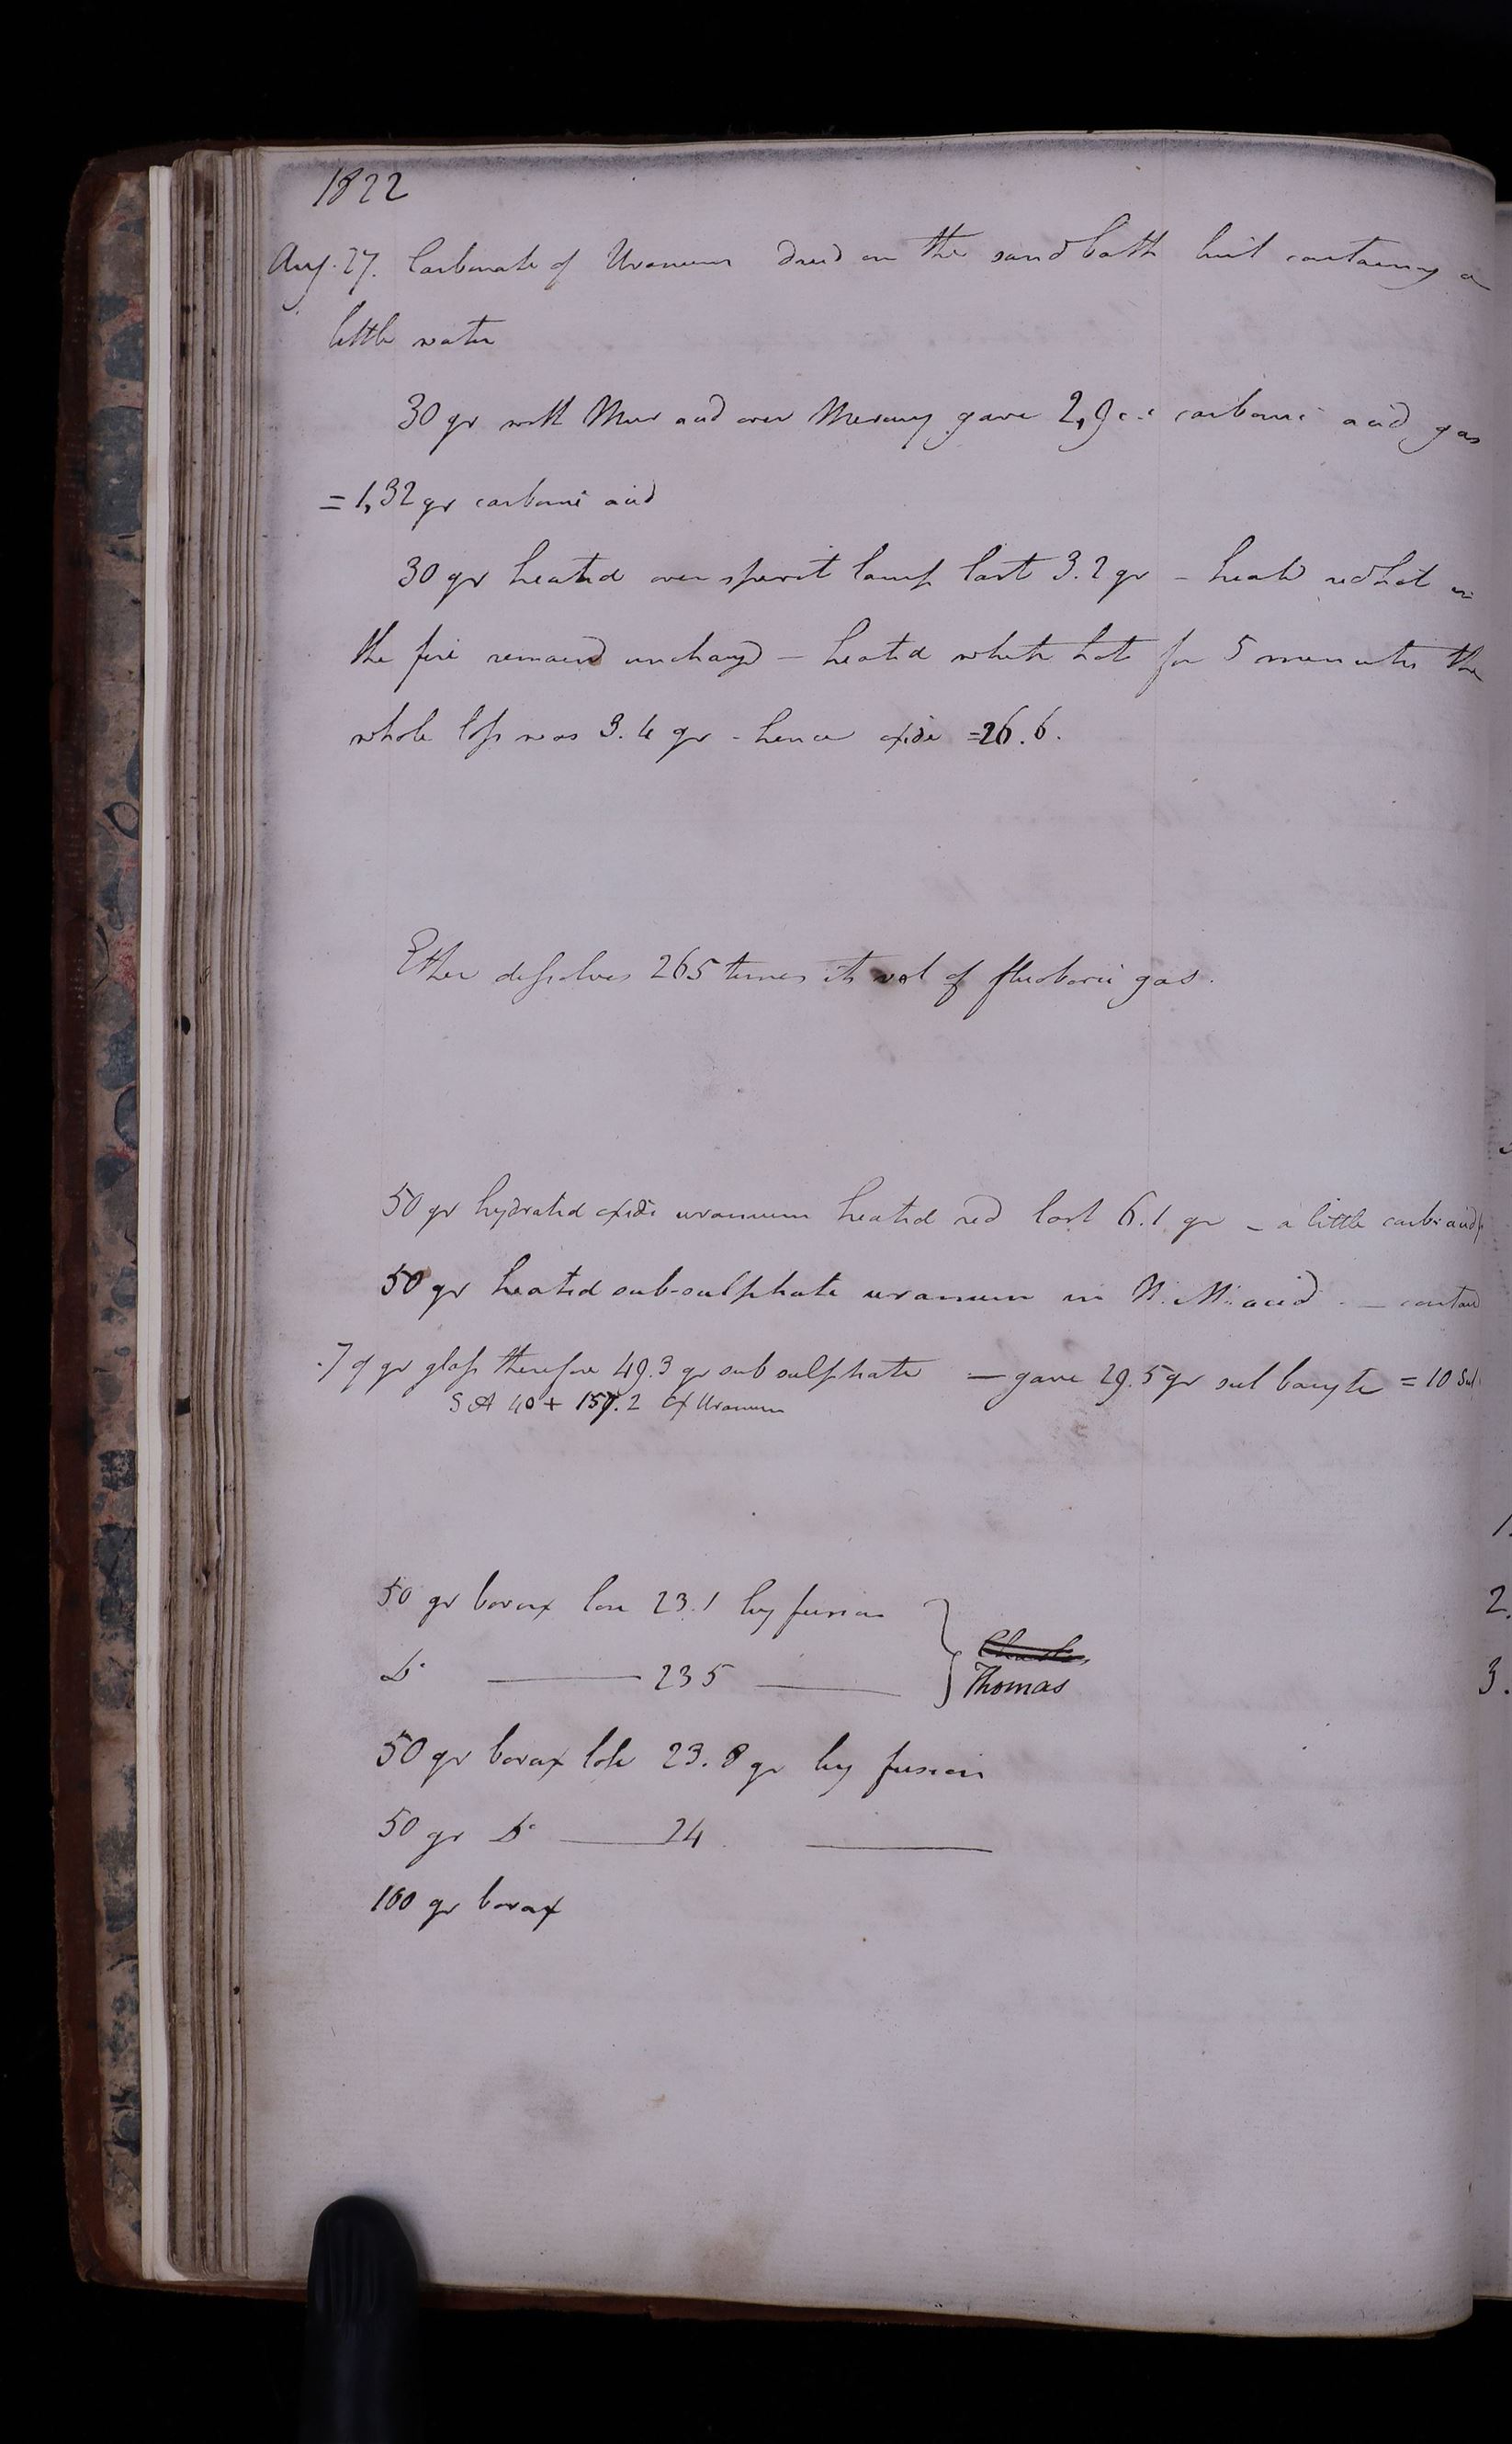 1822
Aug. 27. Carbonate of Uranium dried on the sand bath but containing a
little water
30 gr with Mur acid over Mercury gave 2,9 c.i carbonic acid gas
= 1,32 gr carbonic acid
30 gr heated over spirit lamp lost 3.2 gr - heated red hot in
the fire remained unchangd - heated white hot for 5 minutes the
whole loss was 3.4 gr - hence oxide = 26.6.
Ether dissolves 265 times its vol of fluoboric gas.
50 gr hydrated oxide uranium heated red lost 6.1 gr - a little carb: acid
50 gr heated sub-sulphate uranium in N. M: acid - contad
.7 of gr glass therefore 49.3 gr sub sulphate - gave 29.5 gr sul baryte = 10 Sul
S A 40 + 157.2 Ox Uranium
50 gr borax lose 23.1 by fusion
Do ——— 235 ———
Charles
Thomas
50 gr borax lose 23.8 gr by fusion
50 gr Do ——— 24 ———
100 gr borax
1.
2.
3.